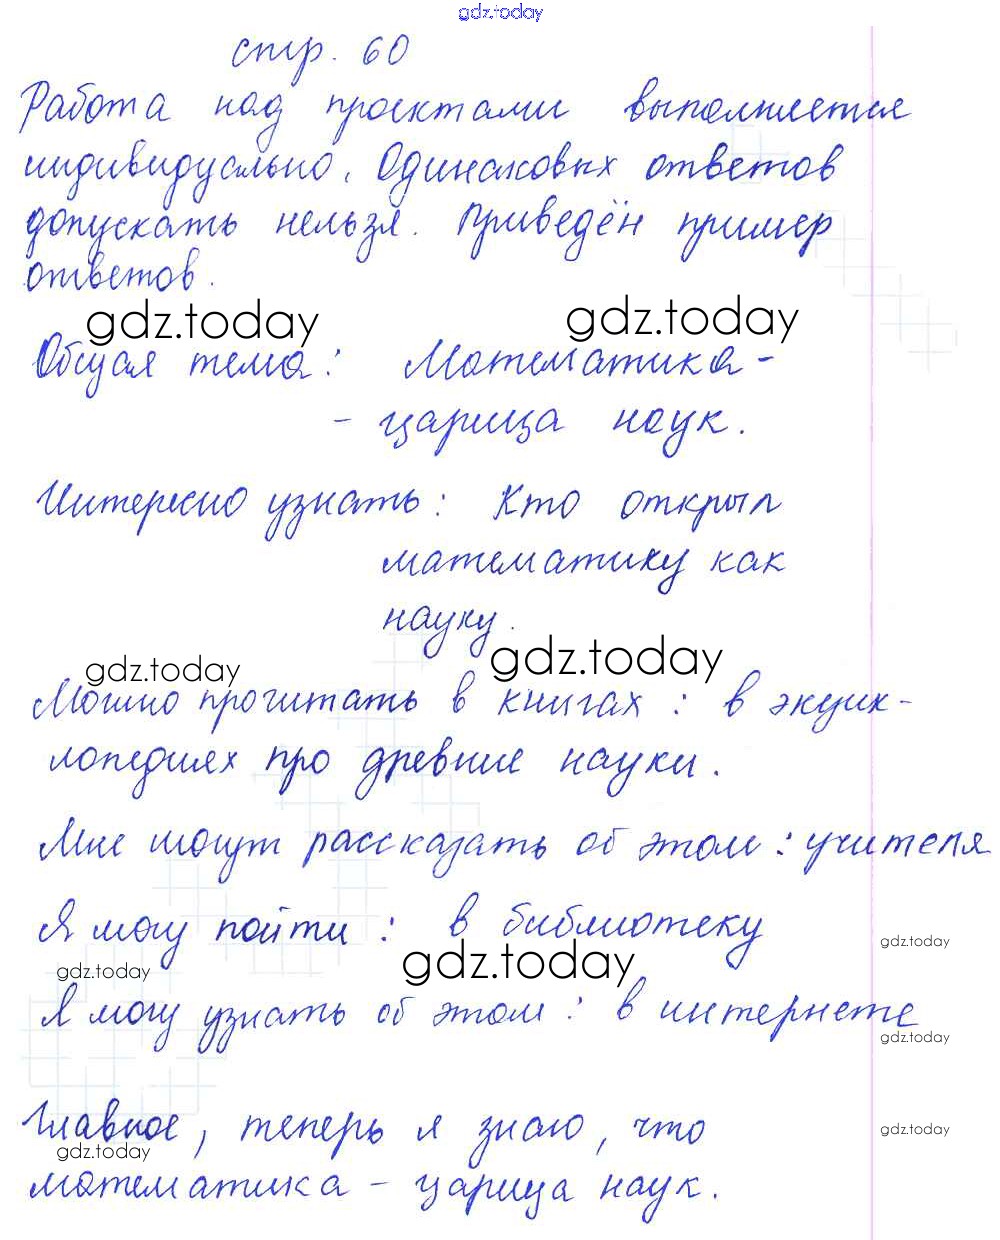 gdz.today
стр. 60
Работа над проектами выполняется
индивидуально. Одинаковых ответов
допускать нельзя. Приведён пример
ответов.
gdz.today gdz.today
Общая тема: Математика -
- царица наук.
Интересно узнать: Кто открыл
математику как
науку.
gdz.today gdz.today
Можно прочитать в книгах: в энцик-
лопедиях про древние науки.
Мне могут рассказать об этом: учителя
Я могу пойти: в библиотеку
gdz.today
gdz.today gdz.today
Я могу узнать об этом: в интернете
gdz.today
Главное, теперь я знаю, что
gdz.today
gdz.today
математика - царица наук.